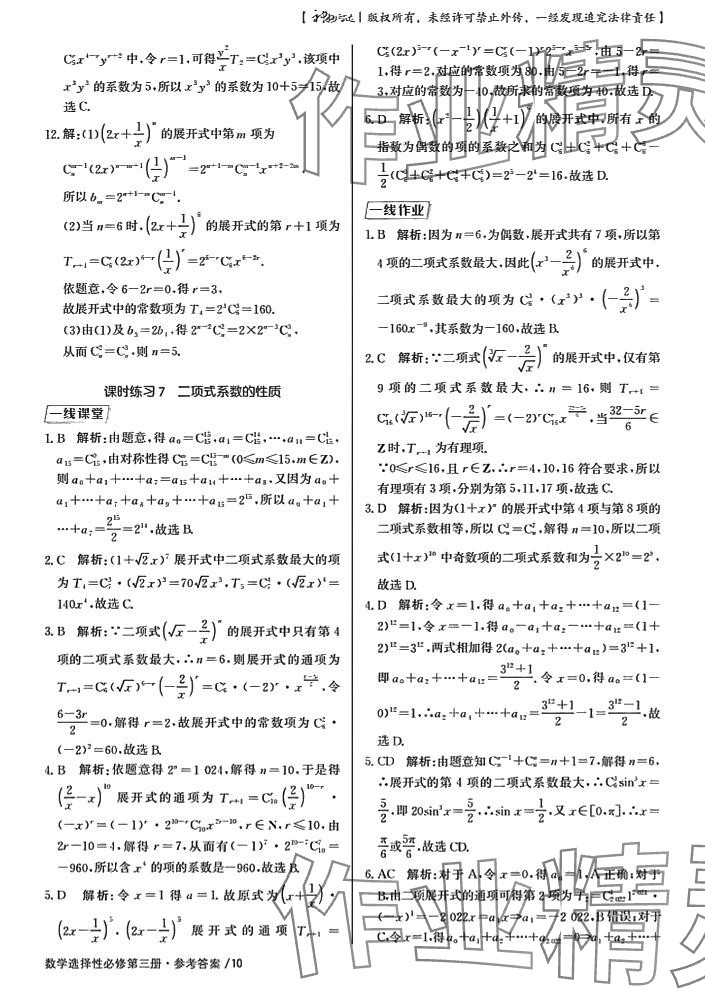 版权所有,未经许可禁止外传,一经发现追究法律责任】
C₅ʳx⁴⁻ʳyʳ⁺² 中,令 r=1,可得 y²/x T₂=C₅¹x³y³,该项中
x³y³ 的系数为 5,所以 x³y³ 的系数为 10+5=15,故
选 C.
12. 解:(1)(2x+1/x)ⁿ 的展开式中第 m 项为
Cₙᵐ⁻¹(2x)ⁿ⁻ᵐ⁺¹(1/x)ᵐ⁻¹=2ⁿ⁺¹⁻ᵐCₙᵐ⁻¹xⁿ⁺²⁻²ᵐ,
所以 bₘ=2ⁿ⁺¹⁻ᵐCₙᵐ⁻¹.
(2)当 n=6 时,(2x+1/x)⁶ 的展开式的第 r+1 项为
Tᵣ₊₁=C₆ʳ(2x)⁶⁻ʳ(1/x)ʳ=2⁶⁻ʳC₆ʳx⁶⁻²ʳ.
依题意,令 6-2r=0,得 r=3,
故展开式中的常数项为 T₄=2³C₆³=160.
(3)由(1)及 b₃=2b₄,得 2ⁿ⁻²Cₙ²=2×2ⁿ⁻³Cₙ³,
从而 Cₙ²=Cₙ³,则 n=5.
课时练习 7 二项式系数的性质
一线课堂
1. B 解析:由题意,得 a₀=C₁₅¹⁵,a₁=C₁₅¹⁴,⋯,a₁₄=C₁₅¹,
a₁₅=C₁₅⁰,由对称性得 C₁₅ᵐ=C₁₅¹⁵⁻ᵐ(0≤m≤15,m∈Z),
则 a₀+a₁+⋯+a₇=a₁₅+a₁₄+⋯+a₈,又因为 a₀+
a₁+⋯+a₇+a₈+a₉+⋯+a₁₅=2¹⁵,所以 a₀+a₁+
⋯+a₇=2¹⁵/2=2¹⁴,故选 B.
2. C 解析:(1+√2x)⁷ 展开式中二项式系数最大的项
为 T₄=C₇³·(√2x)³=70√2x³,T₅=C₇⁴·(√2x)⁴=
140x⁴,故选 C.
3. B 解析:∵二项式(√x-2/x)ⁿ 的展开式中只有第 4
项的二项式系数最大,∴n=6,则展开式的通项为
Tᵣ₊₁=C₆ʳ(√x)⁶⁻ʳ(-2/x)ʳ=C₆ʳ·(-2)ʳ·x^((6-3r)/2),令
(6-3r)/2=0,解得 r=2,故展开式中的常数项为 C₆²·
(-2)²=60,故选 B.
4. B 解析:依题意得 2ⁿ=1 024,解得 n=10,于是得
(2/x-x)¹⁰ 展开式的通项为 Tᵣ₊₁=C₁₀ʳ(2/x)¹⁰⁻ʳ·
(-x)ʳ=(-1)ʳ·2¹⁰⁻ʳC₁₀ʳx²ʳ⁻¹⁰,r∈N,r≤10,由
2r-10=4,解得 r=7,从而有(-1)⁷·2¹⁰⁻⁷C₁₀⁷=
-960,所以含 x⁴ 的项的系数是-960,故选 B.
5. D 解析:令 x=1 得 a=1. 故原式为(x+1/x)·
(2x-1/x)⁵,(2x-1/x)⁵ 展开式的通项 Tᵣ₊₁=
C₅ʳ(2x)⁵⁻ʳ(-x⁻¹)ʳ=C₅ʳ(-1)ʳ2⁵⁻ʳx⁵⁻²ʳ,由 5-2r=
1,得 r=2,对应的常数项为 80,由 5-2r=-1,得 r=
3,对应的常数项为-40,故所求的常数项为 40,故选 D.
6. D 解析:(x²-1/2)(1/x+1)⁶ 的展开式中,所有 x 的
指数为偶数的项的系数之和为 C₆⁰+C₆²+C₆⁴+C₆⁶-
1/2(C₆⁰+C₆²+C₆⁴+C₆⁶)=2⁵-2⁴=16,故选 D.
一线作业
1. B 解析:因为 n=6,为偶数,展开式共有 7 项,所以第
4 项的二项式系数最大,因此(x³-2/x⁶)⁶ 的展开式中,
二项式系数最大的项为 C₆³·(x³)³·(-2/x⁶)³=
-160x⁻⁹,其系数为-160,故选 B.
2. C 解析:∵二项式(∛x-2/√x)ⁿ 的展开式中,仅有第
9 项的二项式系数最大,∴n=16,则 Tᵣ₊₁=
C₁₆ʳ(∛x)¹⁶⁻ʳ(-2/√x)ʳ=(-2)ʳC₁₆ʳx^((32-5r)/6),当(32-5r)/6∈
Z 时,Tᵣ₊₁ 为有理项.
∵0≤r≤16,且 r∈Z,∴r=4,10,16 符合要求,所以
有理项有 3 项,分别为第 5,11,17 项,故选 C.
3. D 解析:因为(1+x)ⁿ 的展开式中第 4 项与第 8 项的
二项式系数相等,所以 Cₙ³=Cₙ⁷,解得 n=10,所以二项
式(1+x)¹⁰ 中奇数项的二项式系数和为1/2×2¹⁰=2⁹,
故选 D.
4. D 解析:令 x=1,得 a₀+a₁+a₂+⋯+a₁₂=(1-
2)¹²=1,令 x=-1,得 a₀-a₁+a₂-⋯+a₁₂=(1+
2)¹²=3¹²,两式相加得 2(a₀+a₂+⋯+a₁₂)=3¹²+1,
即 a₀+a₂+⋯+a₁₂=(3¹²+1)/2. 令 x=0,得 a₀=(1-
0)¹²=1,∴a₂+a₄+⋯+a₁₂=(3¹²+1)/2-1=(3¹²-1)/2,故
选 D.
5. CD 解析:由题意知 Cₙⁿ⁻¹+Cₙⁿ=n+1=7,解得 n=6,
∴展开式的第 4 项的二项式系数最大,∴C₆³sin³x=
5/2,即 20sin³x=5/2,∴sin x=1/2,又 x∈[0,π],∴x=
π/6或5π/6,故选 CD.
6. AC 解析:对于 A,令 x=0,得 a₀=1,A 正确;对于
B,由二项展开式的通项可得第 2 项为 T₂=C₂₀₂₂¹1²⁰²¹·
(-x)¹=-2 022x=a₁x⇒a₁=-2 022,B 错误;对于
C,令 x=1,得 a₀+a₁+⋯+a₂₀₂₂=0⇒a₁+⋯+
数学选择性必修第三册·参考答案/10
作业精灵
作业精灵